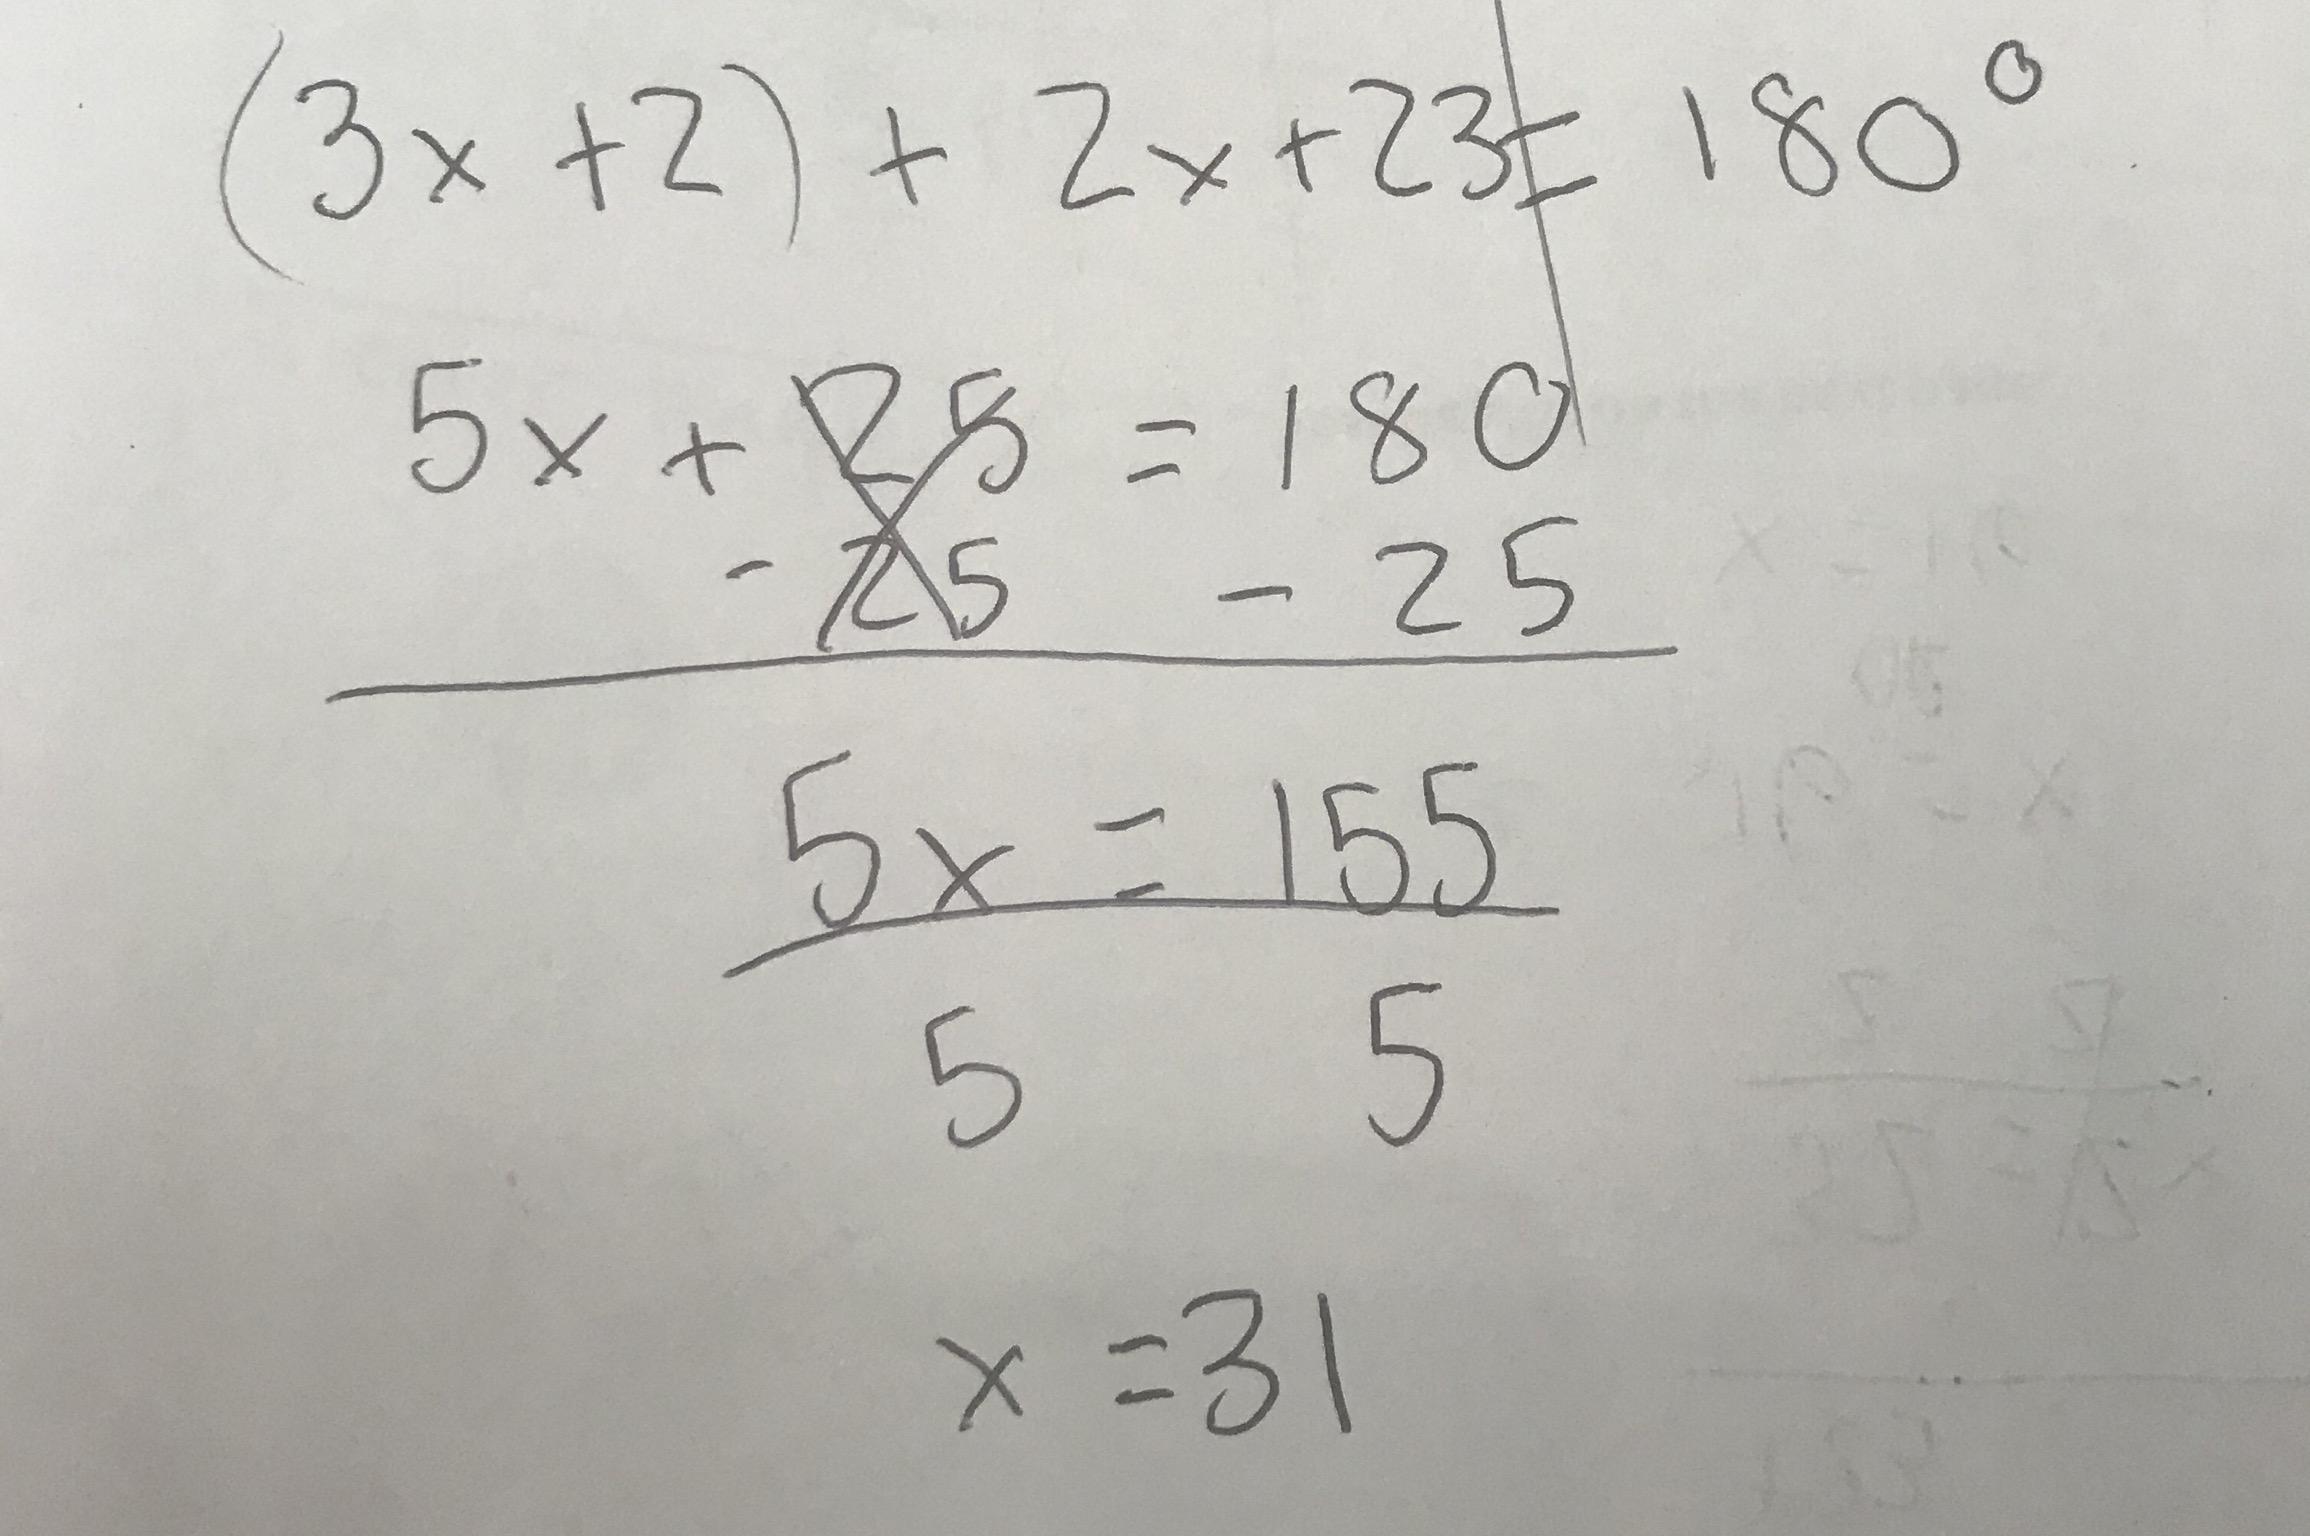 (3x+2) + 2x+23 = 180°
5x + 25 = 180
- 25 - 25
5x = 155
5 5
x = 31